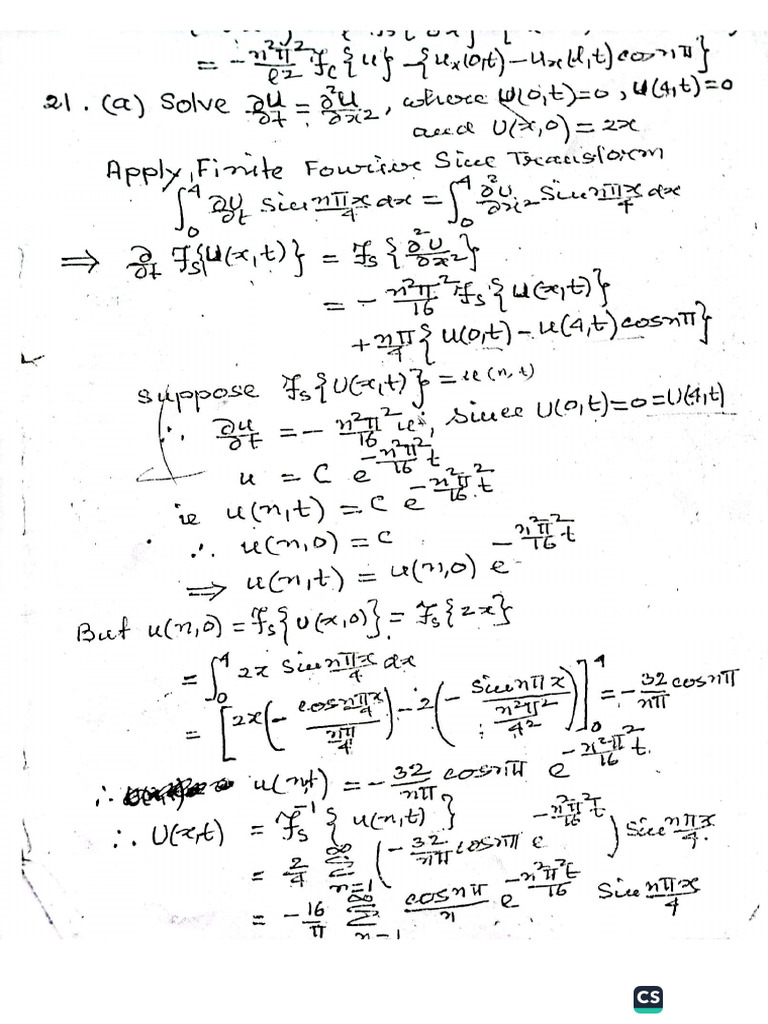 = -n²π²/ℓ² F_c{u} - {u_x(0,t) - u_x(ℓ,t) cos nπ}
21. (a) Solve ∂U/∂t = ∂²U/∂x², where U(0,t)=0, U(4,t)=0
and U(x,0) = 2x
Apply, Finite Fourier Sine Transform
∫₀⁴ ∂U/∂t Sin nπx/4 dx = ∫₀⁴ ∂²U/∂x² Sin nπx/4 dx
⇒ ∂/∂t F_s{U(x,t)} = F_s{∂²U/∂x²}
= -n²π²/16 F_s{U(x,t)}
+ nπ/4 {U(0,t) - u(4,t) cos nπ}
suppose F_s{U(x,t)} = u(n,t)
∴ ∂u/∂t = -n²π²/16 u, since U(0,t)=0=U(4,t)
u = C e^{-n²π²/16 t}
ie u(n,t) = C e^{-n²π²/16 t}
∴ u(n,0) = C
⇒ u(n,t) = u(n,0) e^{-n²π²/16 t}
But u(n,0) = F_s{U(x,0)} = F_s{2x}
= ∫₀⁴ 2x Sin nπx/4 dx
= [2x(-(cos nπx/4)/(nπ/4)) - 2(-(Sin nπx)/(n²π²/4²))]₀⁴ = -32/nπ cos nπ
∴ u(n,t) = -32/nπ cos nπ e^{-n²π²/16 t}
∴ U(x,t) = F_s⁻¹{u(n,t)}
= 2/4 Σ_{n=1}^∞ (-32/nπ cos nπ e^{-n²π²t/16}) Sin nπx/4.
= -16/π Σ_{n=1}^∞ cos nπ/n e^{-n²π²t/16} Sin nπx/4
CS